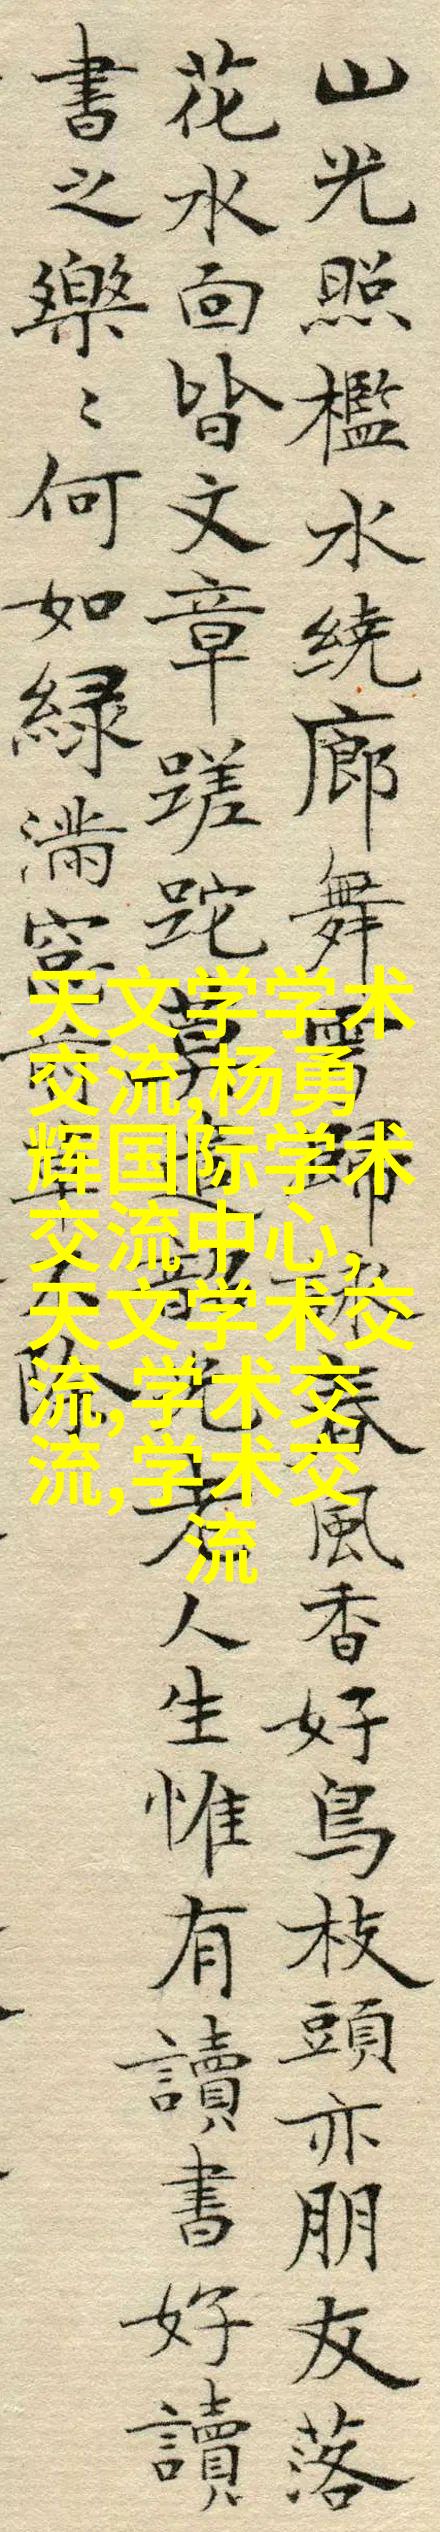 山光照檻水繞廊舞雩歸詠春風香好鳥枝頭亦朋友落
花水面皆文章蹉跎莫遣韶光老人生惟有讀書好讀
書之樂〻何如綠滿窗前草不除
天文学学术
交流,杨勇
辉国际学术
交流中心,
天文学术交
流,学术交
流,学术交
流